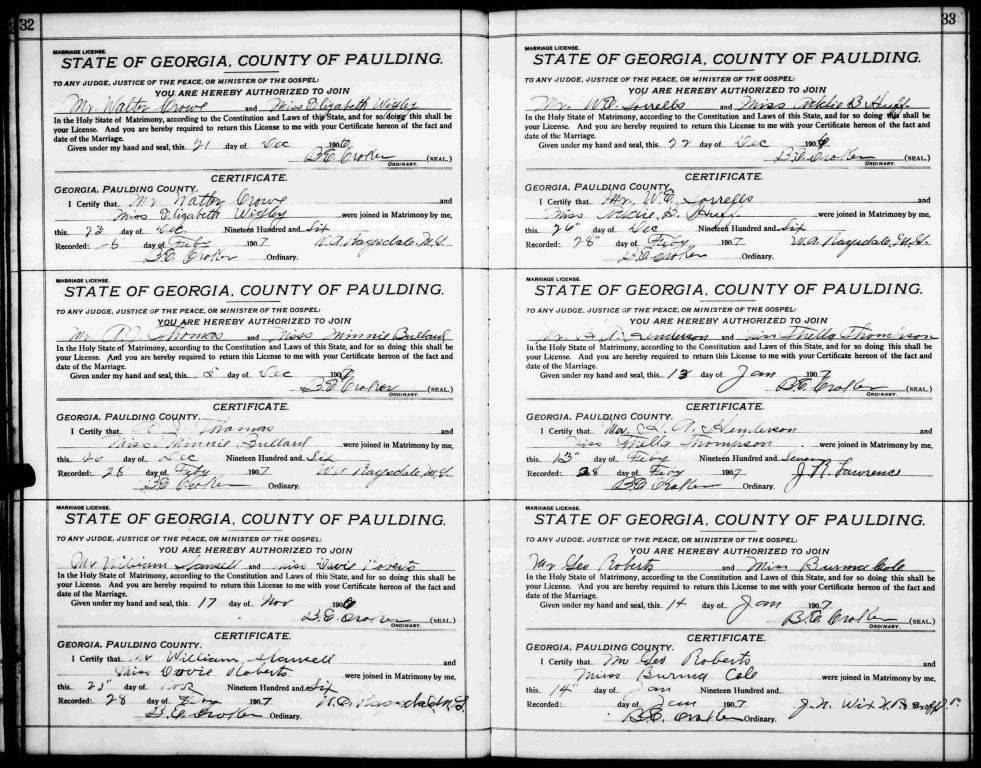 32
MARRIAGE LICENSE.
STATE OF GEORGIA, COUNTY OF PAULDING.
TO ANY JUDGE, JUSTICE OF THE PEACE, OR MINISTER OF THE GOSPEL:
YOU ARE HEREBY AUTHORIZED TO JOIN
Mr. Walter Crowe and Miss Elizabeth Wigley
In the Holy State of Matrimony, according to the Constitution and Laws of this State, and for so doing this shall be
your License. And you are hereby required to return this License to me with your Certificate hereon of the fact and
date of the Marriage.
Given under my hand and seal, this 21 day of Dec 1906
B.E. Croker (SEAL.)
ORDINARY.
CERTIFICATE.
GEORGIA, PAULDING COUNTY.
I Certify that Mr Walter Crowe and
Miss Elizabeth Wigley were joined in Matrimony by me,
this 23 day of Dec. Nineteen Hundred and Six
Recorded: 8 day of Feby 1907 W.A. Ragsdale, M.G.
B.E. Croker Ordinary.
MARRIAGE LICENSE.
STATE OF GEORGIA, COUNTY OF PAULDING.
TO ANY JUDGE, JUSTICE OF THE PEACE, OR MINISTER OF THE GOSPEL:
YOU ARE HEREBY AUTHORIZED TO JOIN
Mr. Thomas and Miss Minnie Bullard
In the Holy State of Matrimony, according to the Constitution and Laws of this State, and for so doing this shall be
your License. And you are hereby required to return this License to me with your Certificate hereon of the fact and
date of the Marriage.
Given under my hand and seal, this day of Dec 190
B.E. Croker (SEAL.)
ORDINARY.
CERTIFICATE.
GEORGIA, PAULDING COUNTY.
I Certify that Thomas and
Miss Minnie Bullard were joined in Matrimony by me,
this day of Dec Nineteen Hundred and Six
Recorded: 28 day of Feby 1907 W.A. Ragsdale, M.G.
B.E. Croker Ordinary.
MARRIAGE LICENSE.
STATE OF GEORGIA, COUNTY OF PAULDING.
TO ANY JUDGE, JUSTICE OF THE PEACE, OR MINISTER OF THE GOSPEL:
YOU ARE HEREBY AUTHORIZED TO JOIN
Mr William and Miss Roberts
In the Holy State of Matrimony, according to the Constitution and Laws of this State, and for so doing this shall be
your License. And you are hereby required to return this License to me with your Certificate hereon of the fact and
date of the Marriage.
Given under my hand and seal, this 17 day of Nov 1906
B.E. Croker (SEAL.)
ORDINARY.
CERTIFICATE.
GEORGIA, PAULDING COUNTY.
I Certify that Mr William and
Miss Dovie Roberts were joined in Matrimony by me,
this day of Nineteen Hundred and Six
Recorded: 28 day of Feby 1907 W.A. Ragsdale M.G.
B.E. Croker Ordinary.
33
MARRIAGE LICENSE.
STATE OF GEORGIA, COUNTY OF PAULDING.
TO ANY JUDGE, JUSTICE OF THE PEACE, OR MINISTER OF THE GOSPEL:
YOU ARE HEREBY AUTHORIZED TO JOIN
Mr. W.E. Sorrells and Miss B. Huff
In the Holy State of Matrimony, according to the Constitution and Laws of this State, and for so doing this shall be
your License. And you are hereby required to return this License to me with your Certificate hereon of the fact and
date of the Marriage.
Given under my hand and seal, this 22 day of Dec 1906
B.E. Croker (SEAL.)
ORDINARY.
CERTIFICATE.
GEORGIA, PAULDING COUNTY.
I Certify that Mr. W.E. Sorrells and
Miss B. Huff were joined in Matrimony by me,
this 26" day of Dec Nineteen Hundred and Six
Recorded: 28" day of Feby 1907 W.A. Ragsdale, M.G.
B.E. Croker Ordinary.
MARRIAGE LICENSE.
STATE OF GEORGIA, COUNTY OF PAULDING.
TO ANY JUDGE, JUSTICE OF THE PEACE, OR MINISTER OF THE GOSPEL:
YOU ARE HEREBY AUTHORIZED TO JOIN
Mr. Henderson and Miss Thella Thompson
In the Holy State of Matrimony, according to the Constitution and Laws of this State, and for so doing this shall be
your License. And you are hereby required to return this License to me with your Certificate hereon of the fact and
date of the Marriage.
Given under my hand and seal, this 13 day of Jan 1907
B.E. Croker (SEAL.)
ORDINARY.
CERTIFICATE.
GEORGIA, PAULDING COUNTY.
I Certify that Mr. A. Henderson and
Miss Thella Thompson were joined in Matrimony by me,
this 13" day of Feby Nineteen Hundred and Seven
Recorded: 28 day of Feby 1907 J.R. Lawrence
B.E. Croker Ordinary.
MARRIAGE LICENSE.
STATE OF GEORGIA, COUNTY OF PAULDING.
TO ANY JUDGE, JUSTICE OF THE PEACE, OR MINISTER OF THE GOSPEL:
YOU ARE HEREBY AUTHORIZED TO JOIN
Mr Geo Roberts and Miss Burma Cole
In the Holy State of Matrimony, according to the Constitution and Laws of this State, and for so doing this shall be
your License. And you are hereby required to return this License to me with your Certificate hereon of the fact and
date of the Marriage.
Given under my hand and seal, this 14 day of Jan 1907
B.E. Croker (SEAL.)
ORDINARY.
CERTIFICATE.
GEORGIA, PAULDING COUNTY.
I Certify that Mr Geo Roberts and
Miss Burma Cole were joined in Matrimony by me,
this 14" day of Jan Nineteen Hundred and
Recorded: day of Jan 1907 J.N. Wix
B.E. Croker Ordinary.